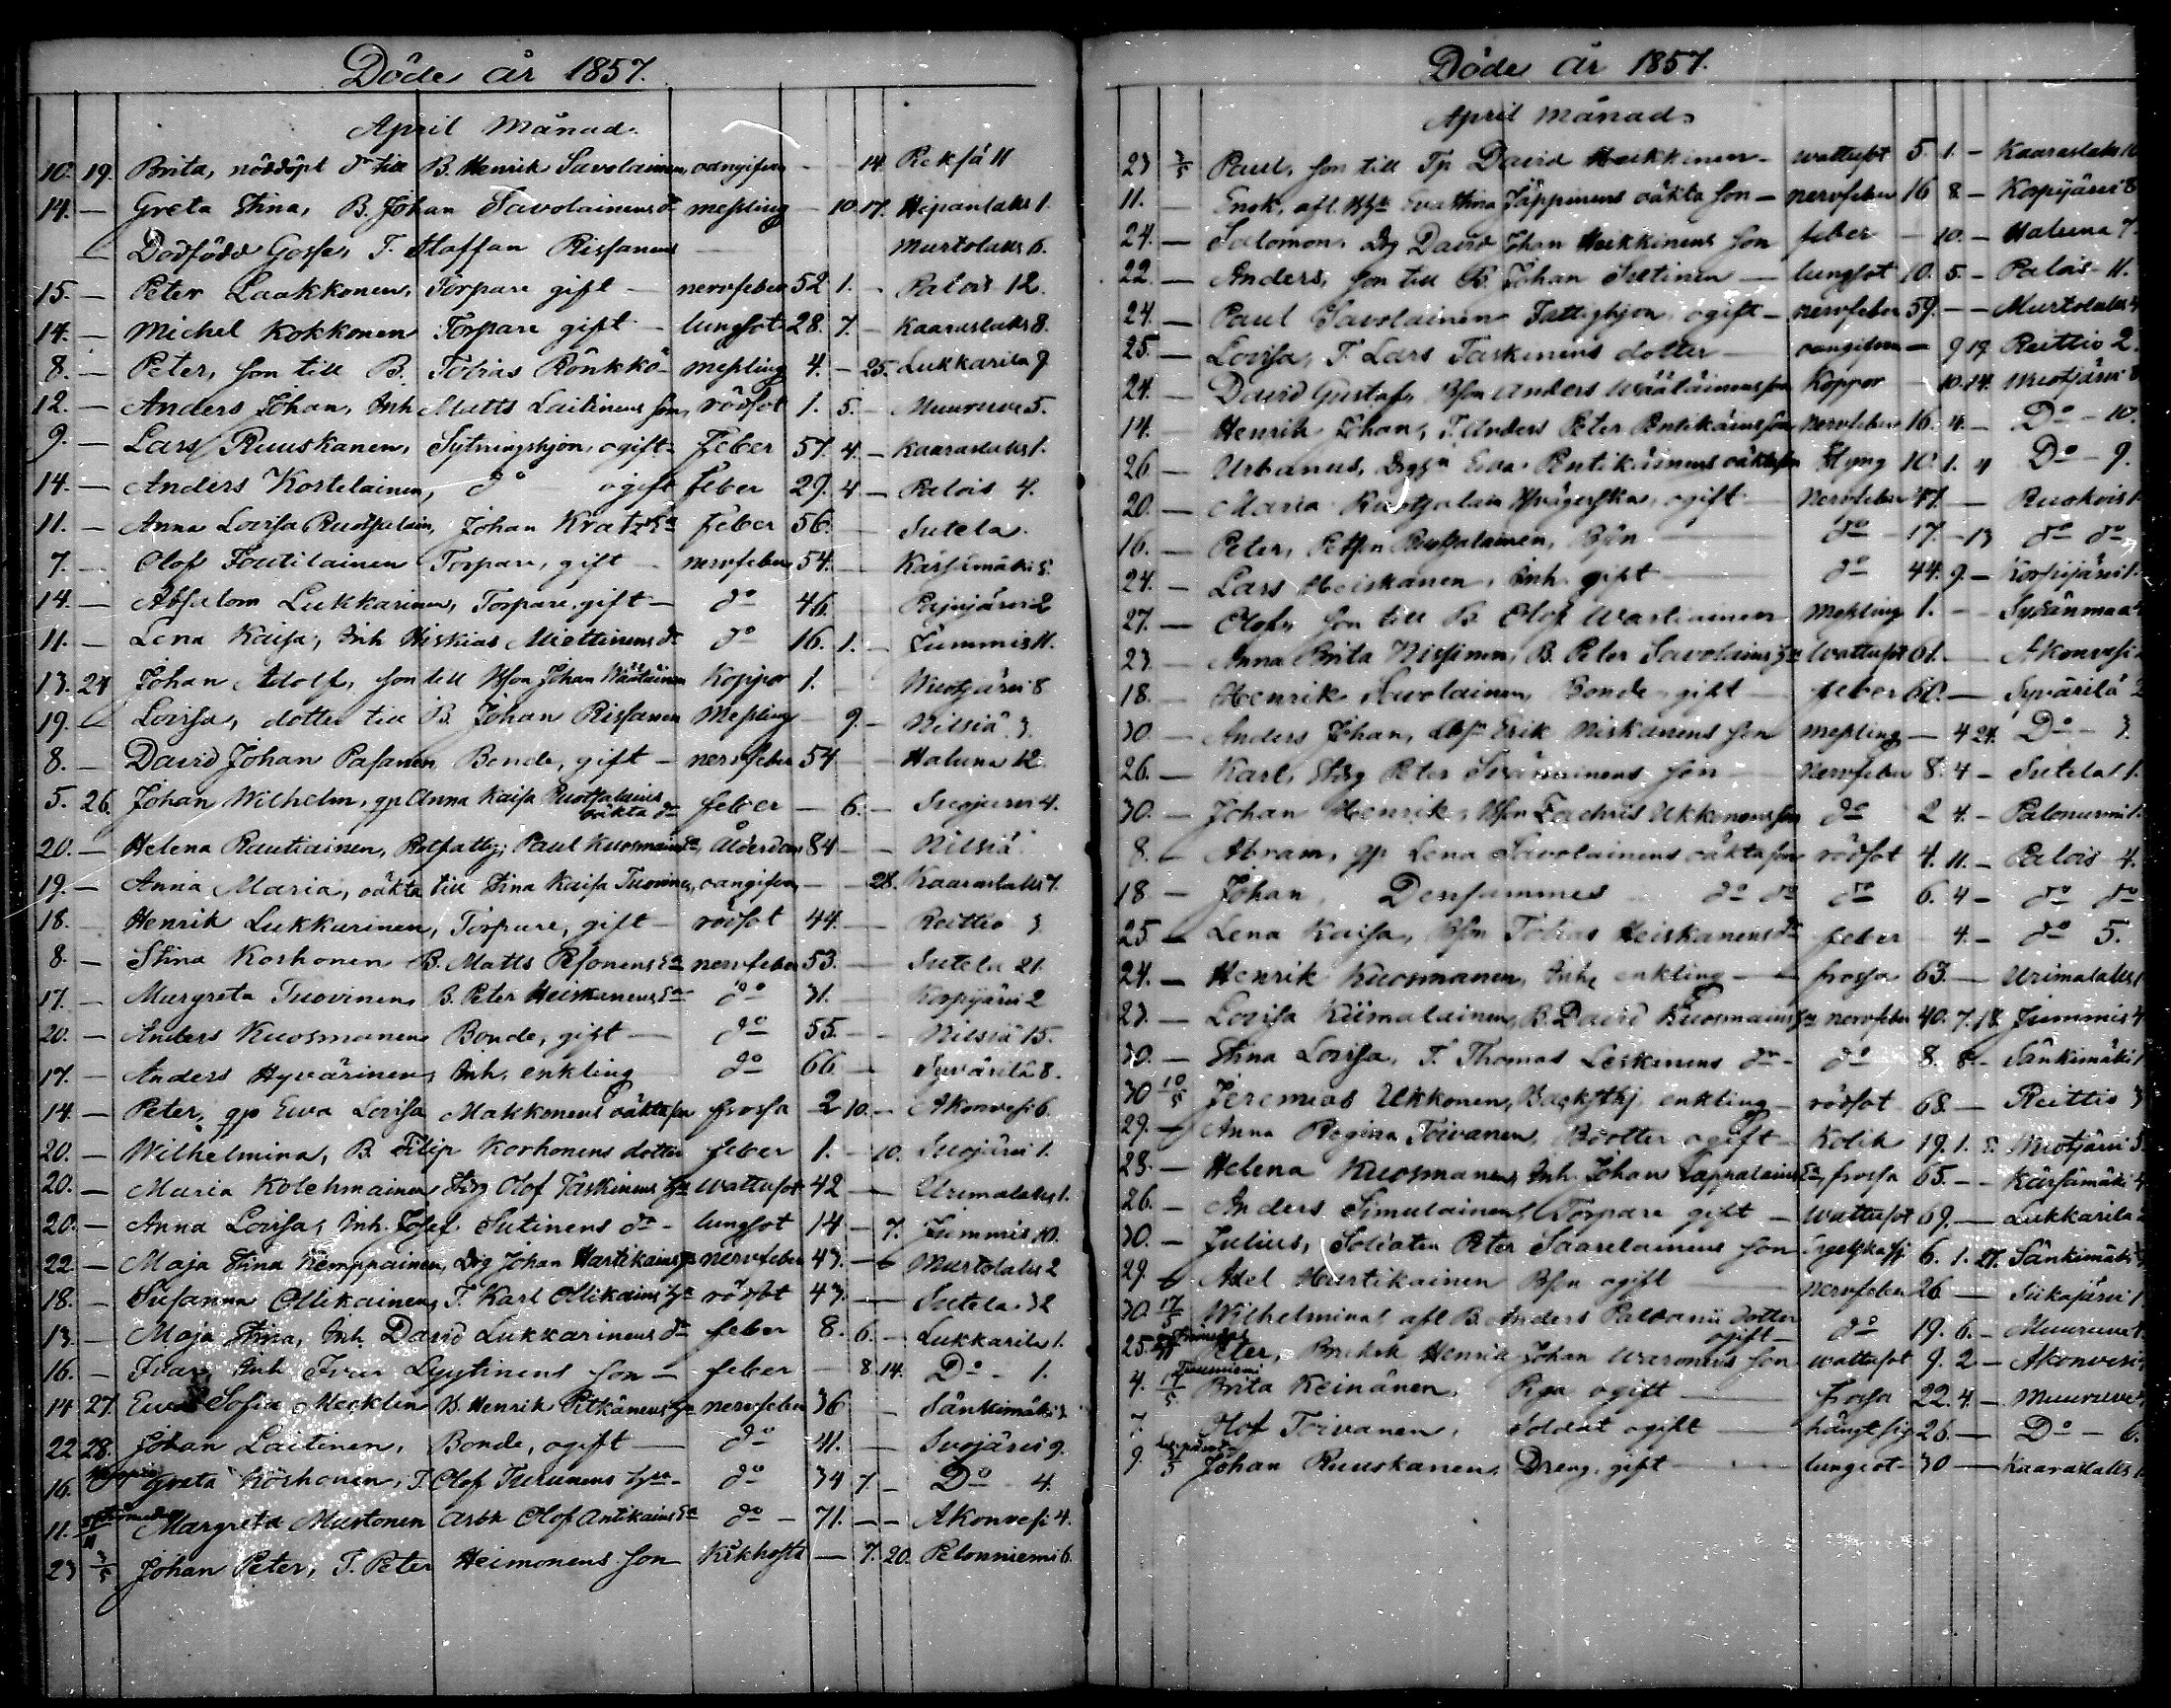 Döde år 1857.
April Månad.
10. 19. Brita, nöddöpt dr till B. Henrik Savolainen, oangifven - - 14. Reksä 11
14. — Greta Stina, B. Johan Savolainens dr meßling - 10. 17. Hipanlaks 1.
— Dödfödd Gosse, T. Staffan Rissanens Murtolaks 6.
15. — Peter Laakkonen, Torpare gift — nervfeber 52 1. - Palois 12.
14. — Michel Kokkonen Torpare gift — lungsot 28. 7. - Kaaraslaks 8.
8. — Peter, son till B. Tobias Rönkkö - meßling 4. - 25. Lukkarila 9
12. — Anders Johan, Inh Matts Laitinens son, rödsot 1. 5. - Muuruve 5.
9. — Lars Ruuskanen, Sytningshjon, ogift - Feber 57. 4. - Kaaraslaks 1.
14. — Anders Kortelainen, do ogift feber 29. 4 - Palois 4.
11. — Anna Lovisa Ruotsalain, Johan Kratz Ea feber 56. - Sutela.
7. — Olof Toutilainen Torpare, gift — nervfeber 54. — Kärsämäki 5.
14. — Absalom Lukkarinen, Torpare, gift — do 46. Pajujärvi 2
11. — Lena Kaisa, Inh Hiskias Miettinens dr do 16. 1. - Jummis 11.
13. 24 Johan Adolf, son till Bson Johan Väätäinen Koppor 1. Wuotjärvi 8
19. — Lovisa, dotter till B. Johan Rissanen Meßling - 9. - Nilsiä 3.
8. — David Johan Pasanen Bonde, gift — nervfeber 54 - Haluna 12.
5. 26. Johan Wilhelm, gp Anna Kaisa Ruotsalains oäkta feber — 6. - Suojärvi 4.
20. — Helena Rautiainen, Paul Kuosmains Ea, Ålderdom 84 - - Nilsiä
19. — Anna Maria, oäkta till Stina Kaisa Tuovinen, oangifven - - 28. Kaaraslaks 7.
18. Henrik Lukkarinen, Torpare, gift — rödsot 44. - Reittio 3
8. — Stina Korhonen B. Matts Pesonens Ea nervfeber 53. — Sutela 21.
17. — Margreta Tuovinen, B. Peter Heiskanens Ea do 31. Korpijärvi 2
20. — Anders Kuosmanen Bonde, gift — do 55. - Nilsiä 15.
17. — Anders Hyvärinen, Inh, enkling do 66 — Syvärilä 8.
14. — Peter, gp Ewa Lovisa Makkonens oäkta son frossa 2 10. - Akonvesi 6.
20. — Wilhelmina, B. Filip Korhonens dotter feber 1. - 10. Suojärvi 1.
20. — Maria Kolehmainen Olof Taskinens hu wattusot 42 — Urimalaks 1.
20. — Anna Lovisa, Inh. Josef Sutinens dr - lungsot 14 - 7. Jummis 10.
22 — Maja Stina Kemppainen, Dräg Johan Hartikains hu nervfeber 43. — Murtolaks 2
18. — Susanna Ollikainen, T. Karl Ollikains hu rödsot 43. — Sutela 32
13. — Maja Stina, Inh. David Lukkarinens dr feber 8. 6. - Lukkarila 1.
16. — Ivar, Inh Ivar Lyytinens son — feber - 8. 14. Do - 1.
14 27. Ewa Sofia Mecklin B. Henrik Pitkänens hu nervfeber 36 - Sänkimäki
22 28. Johan Laitinen, Bonde, ogift — do 41. — Suojärvi 9.
16. Greta Korhonen, T. Olof Turunens hu - do 34 7 - Do - 4.
11. Margreta Mustonen Arbk Olof Antikains Ea do - 71. - - Akonvesi 4.
23 3/5 Johan Peter, T. Peter Heimonens son Kikhosta - 7. 20. Pelonniemi 6.
Döde år 1857.
April månad
23 3/5 Paul, son till Tp David Heikkinen — wattusot 5. 1. - Kaaraslaks
11. — Enok, afl. Eva Stina Jäppinens oäkta son — nervfeber 16 8 - Korpijärvi 8
24. — Salomon, Drg David Johan Heikkinens son feber - 10. - Haluna 7.
22. — Anders, son till B. Johan Sutinen — lungsot 10. 5. - Palois 11.
24. — Paul Savolainen Fattighjon, ogift — nervfeber 59. - - Murtolaks 4
25. — Lovisa, T. Lars Taskinens dotter — oangifven — 9 19. Reittio 2.
24. — David Gustaf, Bson Anders Väätäinens son Koppor - 10. 14. Wuotjärvi 8
14. Henrik Johan, T. Anders Peter Pentikäins son nervfeber 16. 4. - Do - 10.
26 — Urbanus, Ewa Pentikäinens oäkta son Styng 10. 1. 4 Do - 9.
20. — Maria Ruotsalain ogift nervfeber 47. — Ruokois 1.
16. — Peter, Petter Ruotsalainen, Bson — do 17. - 13 do do
24. — Lars Heiskanen, Inh. gift — do 44. 9. - Korpijärvi 1.
27. — Olof, son till B. Olof Wartiainen meßling 1. - - Sydänmaa
23. — Anna Brita Nissinen, B. Peter Savolains hu wattusot 61. — Akonvesi 2
18. — Henrik Savolainen, Bonde gift — feber 60. — Syvärilä 2
30. — Anders Johan, Erik Niskanens son meßling — 4 24. Do - 3.
26. — Karl, Peter Sväninens son — nervfeber 8. 4 - Sutela 1.
30. — Johan Henrik, Bson Zachris Ukkonens son do 2 4. - Palonurmi 1.
8. — Abram, gp Lena Savolainens oäkta son rödsot 4. 11. - Palois 4.
18 — Johan, Densammes do do do 6. 4 - do do
25 — Lena Kaisa, Bson Tobias Heiskanens dr feber - 4. - do 5.
24. — Henrik Kuosmanen, Inh, enkling — frossa 63. — Urimalaks 1
23. — Lovisa Kiimalainen, B. David Kuosmains hu nervfeber 40. 7. 18. Jummis 4
30. — Stina Lovisa, T. Thomas Leskinens dr - do 8. 8. - Sänkimäki 1
30 10/5 Jeremias Ukkonen, enkling — rödsot 68. — Reittio 3
29. — Anna Regina Toivanen, Bdotter ogift — Kolik 19. 1. 5. Wuotjärvi 5
28. — Helena Kuosmanen, Inh. Johan Lappalains Ea, frossa 65. - - Kärsämäki 4
26. — Anders Simulainen, Torpare gift — wattusot 69. — Lukkarila 2
30. — Julius, Soldaten Peter Saarelainens son Engelska sj 6. 1. 27. Sänkimäki
29. — Axel Hartikainen Bson ogift — nervfeber 26 — Siikajärvi 1
30. 17/5 Wilhelmina, afl B. Anders Paldanii dotter ogift — do 19. 6. - Muuruve 1.
25. Peter, Henrik Johan Waronens son wattusot 9. 2 - Akonvesi
4. Brita Keinänen, Piga ogift — frossa 22. 4. - Muuruve 4
7. Olof Toivanen, Soldat ogift — hängt sig 26. — Do - 6.
9. Johan Ruuskanen, Dreng, gift — lungsot 30 — Kaaraslaks